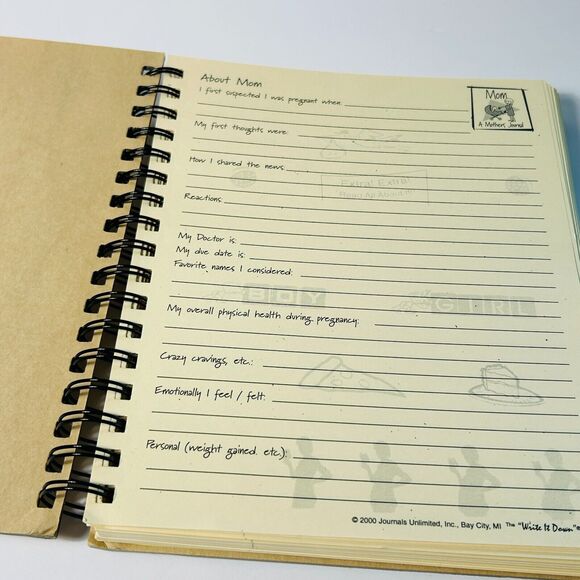 About Mom
I first suspected I was pregnant when:
Mom
A Mothers Journal
My first thoughts were:
How I shared the news:
Extra! Extra!
Read All About It!
Reactions:
My Doctor is:
My due date is:
Favorite names I considered:
BOY
GIRL
My overall physical health during pregnancy:
Crazy cravings, etc.:
Emotionally I feel / felt:
Personal (weight gained, etc.):
© 2000 Journals Unlimited, Inc., Bay City, MI The "Write It Down"®